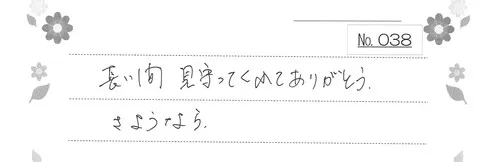 No. 038
長い間 見守ってくれてありがとう.
さようなら.